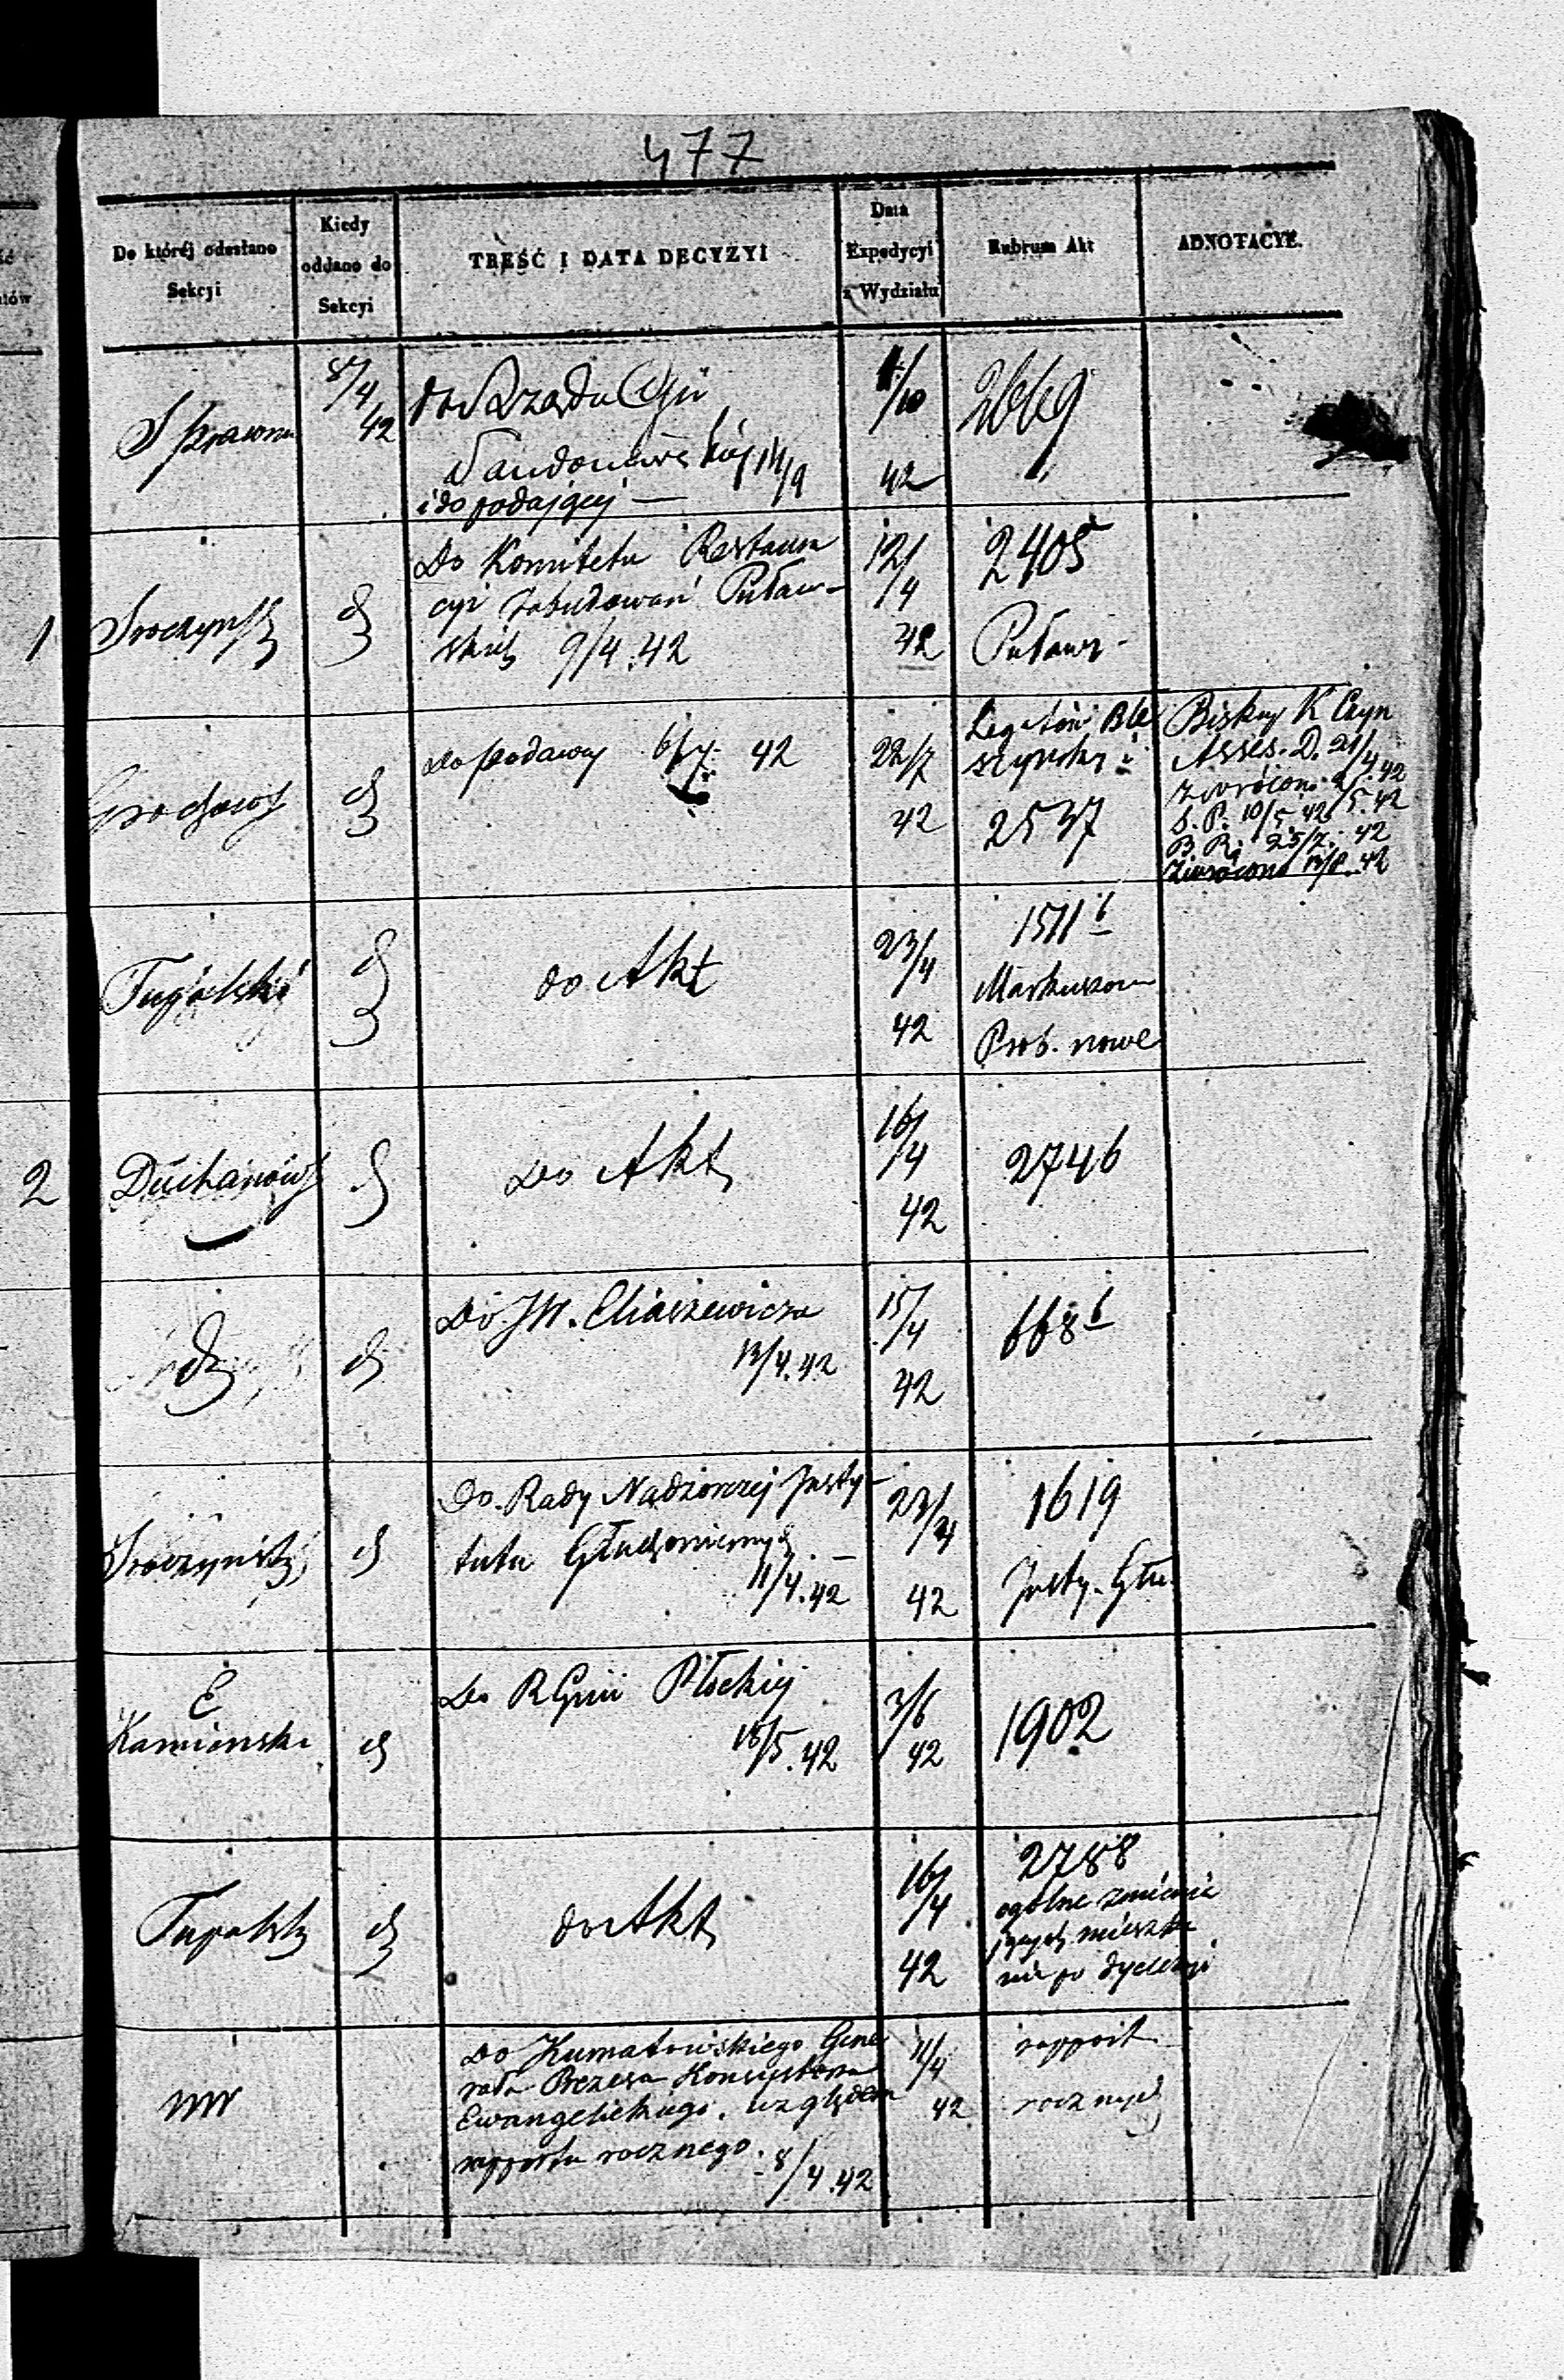 477
Do któréj odesłano
Sekcyi
Kiedy
oddano do
Sekcyi
TREŚĆ I DATA DECYZYI
Data
Expedycyi
z Wydziału
Rubrum Akt
ADNOTACYE.
8/4
42
do Rządu
Sandomirskiéj 14/9
i do podającéj —
/10
42
1
Do Komitetu Restaura
cyi Zabudowań Puław-
skich 9/4.42
12/4
42
2405
Puławy
do podawcy 42
22/7
42
Legatów Ble
szyńskı
2537
Biskup K
Asses. D. 21/4.42
zwrócono 5.42
S. P. 10/5 42
B. R. 25/7. 42
Zwrócono 42
do Akt
23/4
42
1511 b
Prob. nowe
2
Duchanows
do Akt
16/4
42
2746
Do JW. Eliaszewicza
13/4.42
15/4
42
668 b
Sroczyński
Do Rady Nadzorczéj Insty-
tutu Głuchoniemych —
11/4.42
23/4
42
1619
Insty. Głu.
E
Kamienski
Do RGnii Płockiéj
18/5.42
3/6
42
1902
Tupalsk
do Akt
16/4
42
2788
ogólne
nie po dyecezyi
do Gene
rała Prezesa Konsystorza
Ewangelickiego, względem
rapportu rocznego. 8/4.42
11/4
42
rapport
rocznych